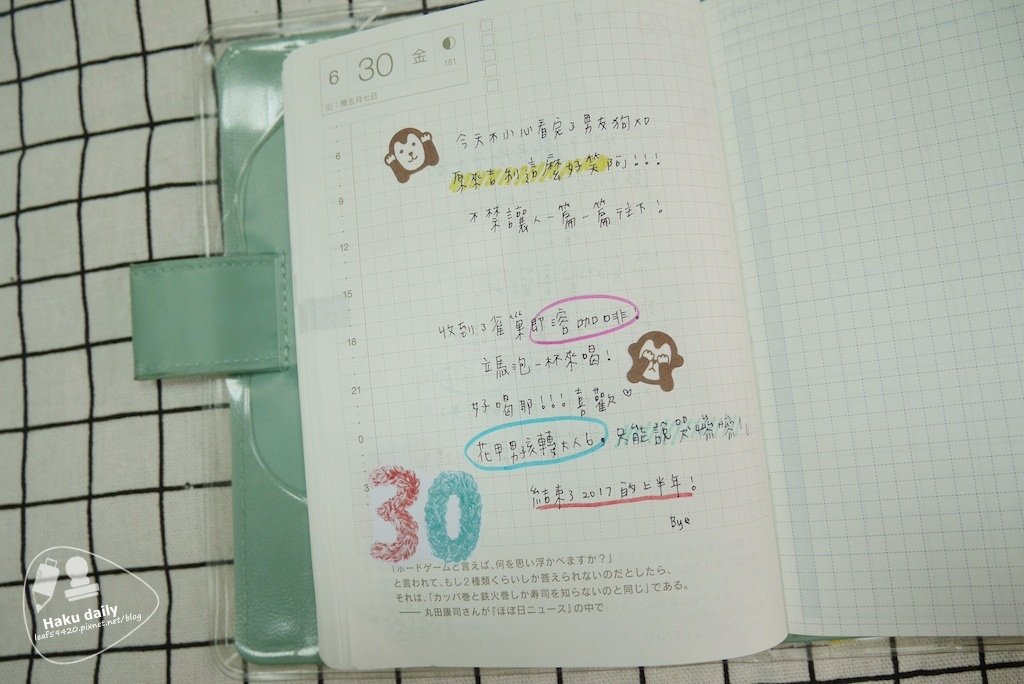 6 30 金
181
旧 閏五月七日
今天不小心看完了男友狗XD
原來吉制這麼好笑阿!!!
不禁讓人一篇一篇往下!
收到了雀巢即溶咖啡。
立馬泡一杯來喝!
好喝耶!!!喜歡♡
花甲男孩轉大人6。只能說哭爆
結束了2017的上半年!
Bye
6
9
12
15
18
21
0
3
30
「ボードゲームと言えば、何を思い浮かべますか?」
と言われて、もし2種類くらいしか答えられないのだとしたら、
それは、「カッパ巻と鉄火巻しか寿司を知らないのと同じ」である。
―― 丸田康司さんが『ほぼ日ニュース』の中で
Haku daily
leaf59420.pixnet.net/blog